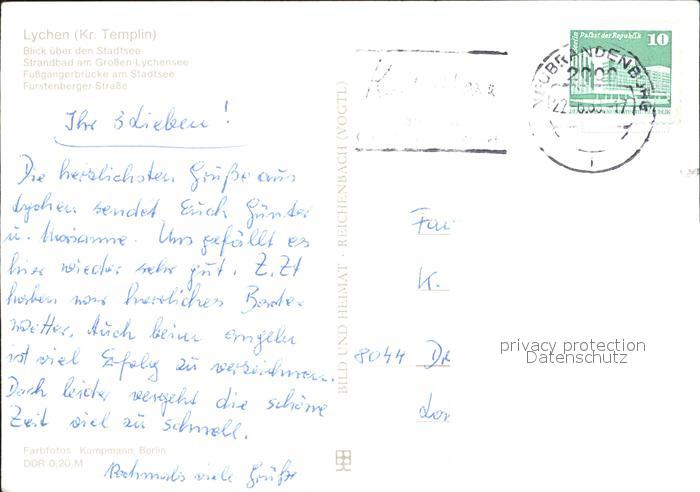 Lychen (Kr. Templin)
Blick über den Stadtsee
Strandbad am Großen Lychensee
Fußgängerbrücke am Stadtsee
Fürstenberger Straße
Ihr 3 Lieben!
Die herzlichsten Grüße aus
Lychen sendet Euch Günter
u. Marianne. Uns gefällt es
hier wieder sehr gut. Z.Zt
haben wir herrliches Bade-
wetter. Auch beim angeln
ist viel Erfolg zu verzeichnen.
Doch leider vergeht die schöne
Zeit viel zu schnell.
Nochmals viele Grüße
Farbfotos Kampmann, Berlin
DDR 0,20 M
BILD UND HEIMAT · REICHENBACH (VOGTL)
Berlin Palast der Republik 10
NEUBRANDENBURG
2000
8044
K.
privacy protection
Datenschutz